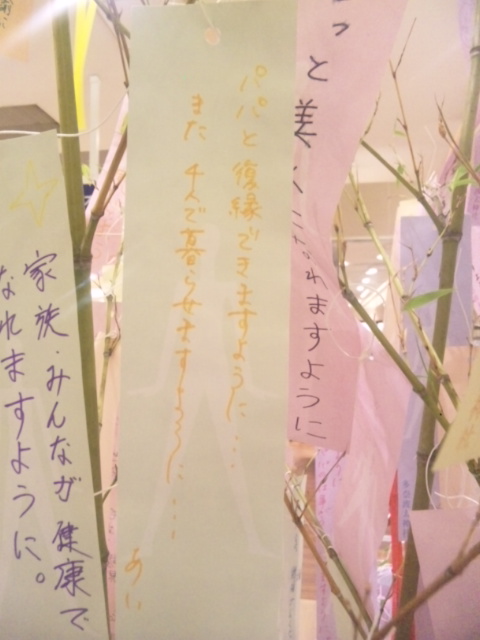 っと美しくなれますように
パパと復縁できますように...
また 4人で暮らせますように...
あい
家族みんなが健康で
なれますように。